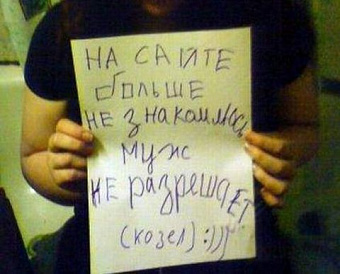 НА САЙТЕ
больше
НЕ знакомлюсь
муж
НЕ разрешаЕТ
(козел) :)))